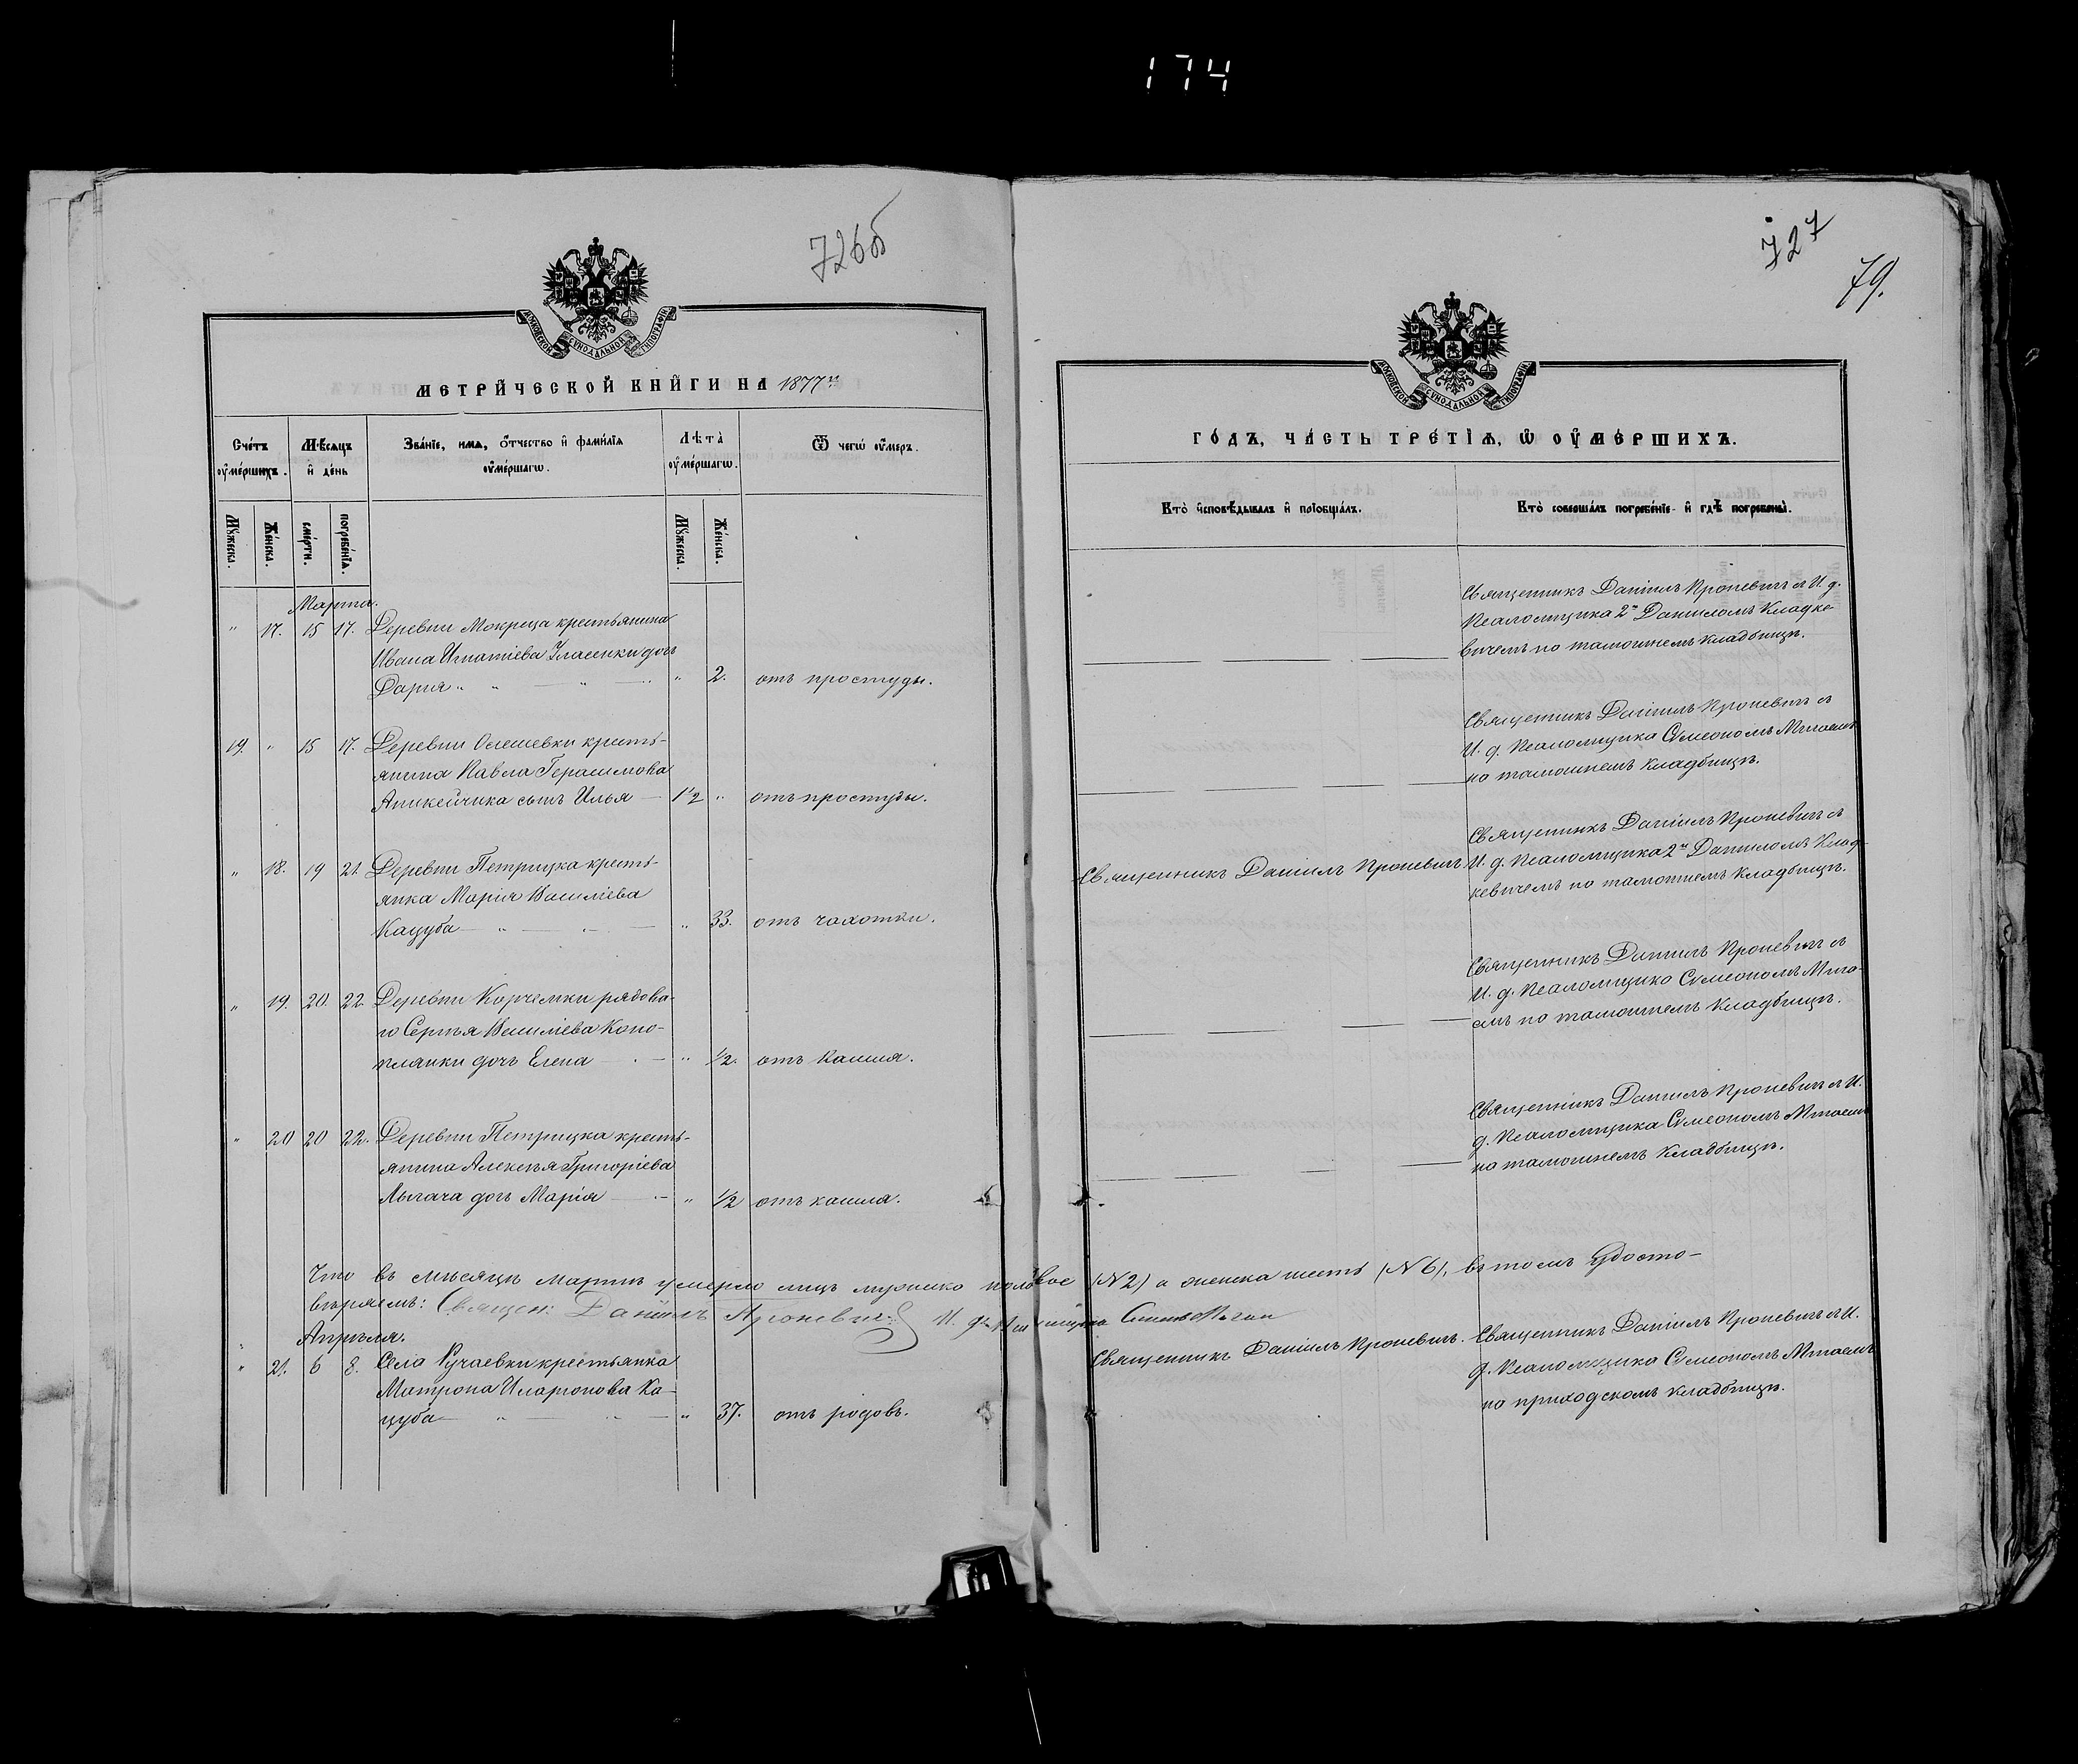 174
726б
727
79.
МОСКОВСКОЙ СѴНОДАЛЬНОЙ ТИПОГРАФІИ
МЕТРИ́ЧЕСКОЙ КНИ́ГИ НА 1877й
Сче́тъ оу҆ме́ршихъ.
Мѣ́сяцъ и҆ де́нь
Зва́нїе, имѧ, о҆́тчество и҆ фами́лїѧ оу҆ме́ршагѡ.
Лѣта̀ оу҆ме́ршагѡ.
Ѿ чегѡ̀ оу҆́меръ.
Мꙋ́жеска.
Же́нска.
сме́рти.
погребе́нїѧ.
Мꙋ́жеска.
Же́нска.
Марта.
" 17. 15 17. Деревни Мокреца крестьянина
Ивана Игнатіева Уласики дочь
Дарія " " — " — " " 2. отъ простуды.
19. " 15 17. Деревни Олешевки кресть-
янина Павла Герасимова
Аникейчика сынъ Илья — 1½ " отъ простуды.
" 18. 19 21. Деревни Петрицка кресть-
янка Марія Василіева
Кацуба — " — " — " 33. отъ чахотки.
" 19. 20 22. Деревни Корчемки рядова-
го Сергѣя Василіева Коно-
плянки дочь Елена — . — " ½. отъ кашля.
" 20 20 22. Деревни Петрицка кресть-
янина Алексѣя Григоріева
Лыгача дочь Марія — " ½ отъ кашля.
Что въ мѣсяцѣ Мартѣ умерло лицъ мужеско половое (N 2) а женска шесть (N 6), въ томъ удосто-
вѣряемъ: Священ: Даніилъ Проневичъ И. д. Псаломщика
Апрѣля.
" 21. 6 8. Села Ручаевки крестьянка
Матрона Иларіонова Ка-
цуба — " — " — " 37. отъ родовъ.
МОСКОВСКОЙ СѴНОДАЛЬНОЙ ТИПОГРАФІИ
ГО́ДЪ, ЧА́СТЬ ТРЕ́ТЇѦ, Ѡ҆ ОУ҆МЕ́РШИХЪ.
Кто̀ и҆сповѣ́дывалъ и҆ прїѡбща́лъ.
Кто̀ соверша́лъ погребе́нїе и҆ гдѣ̀ погребены̀.
Священникъ Даніилъ Проневичъ съ И. д.
Псаломщика 2м Даниломъ Кладке-
вичемъ на тамошнемъ кладбищѣ.
Священникъ Даніилъ Проневичъ съ
И. д. Псаломщика Сѵмеономъ Мигаемъ
на тамошнемъ кладбищѣ.
Священникъ Даніилъ Проневичъ
Священникъ Даніилъ Проневичъ съ
И. д. Псаломщика 2м Даниломъ Клад-
кевичемъ на тамошнемъ кладбищѣ.
Священникъ Даніилъ Проневичъ съ
И. д. Псаломщика Сѵмеономъ Мига-
емъ на тамошнемъ кладбищѣ.
Священникъ Даніилъ Проневичъ съ И.
д. Псаломщика Сѵмеономъ Мигаемъ
на тамошнемъ кладбищѣ.
Священникъ Даніилъ Проневичъ.
Священникъ Даніилъ Проневичъ съ И.
д. Псаломщика Сѵмеономъ Мигаемъ
на приходскомъ кладбищѣ.